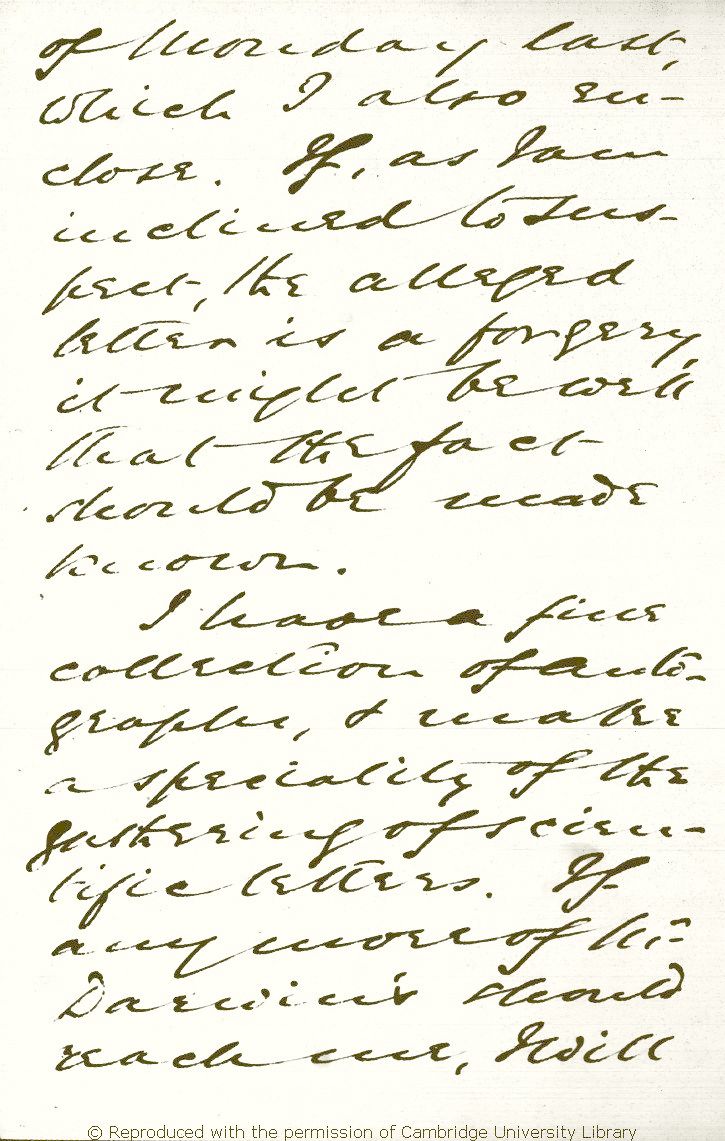 of Monday last,
which I also en-
close. If, as I am
inclined to sus-
pect, the alleged
letter is a forgery,
it might be well
that the fact
should be made
known.
I have a fine
collection of auto-
graphs, & make
a speciality of the
gathering of scien-
tific letters. If
any more of Mr
Darwin's should
reach me, I will
© Reproduced with the permission of Cambridge University Library